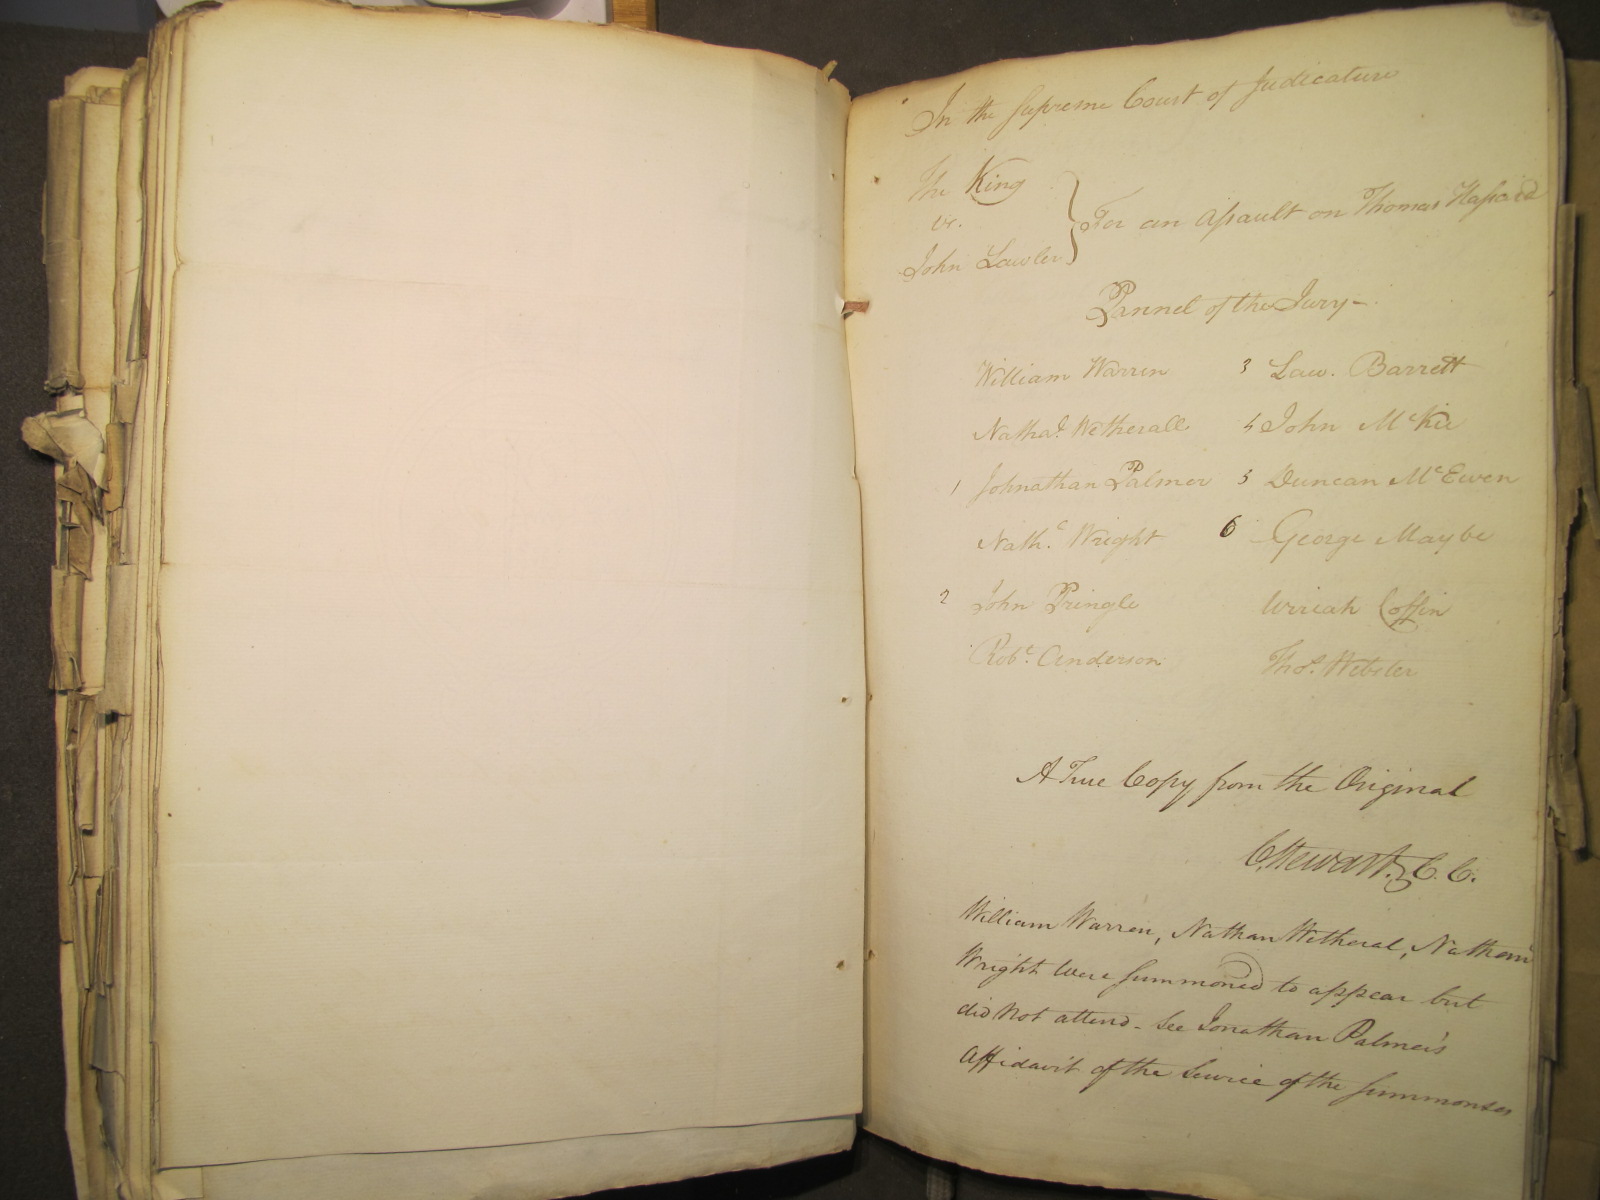 In the Supreme Court of Judicature
The King
vs.
John Lawler
} For an Assault on Thomas Hassard
Pannel of the Jury -
William Warren
Nathal. Wetherall
1 Johnathan Palmer
Nathl. Wright
2 John Pringle
Robt. Anderson
3 Law. Barrett
4 John McKie
5 Duncan McEwen
6 George Maybe
Urriah Coffin
Thos. Webster
A True Copy from the Original
C. Stewart. C. C.
William Warren, Nathan Wetheral, Nathan
Wright were summoned to appear but
did Not attend - See Jonathan Palmer's
Affidavit of the Service of the Summonses